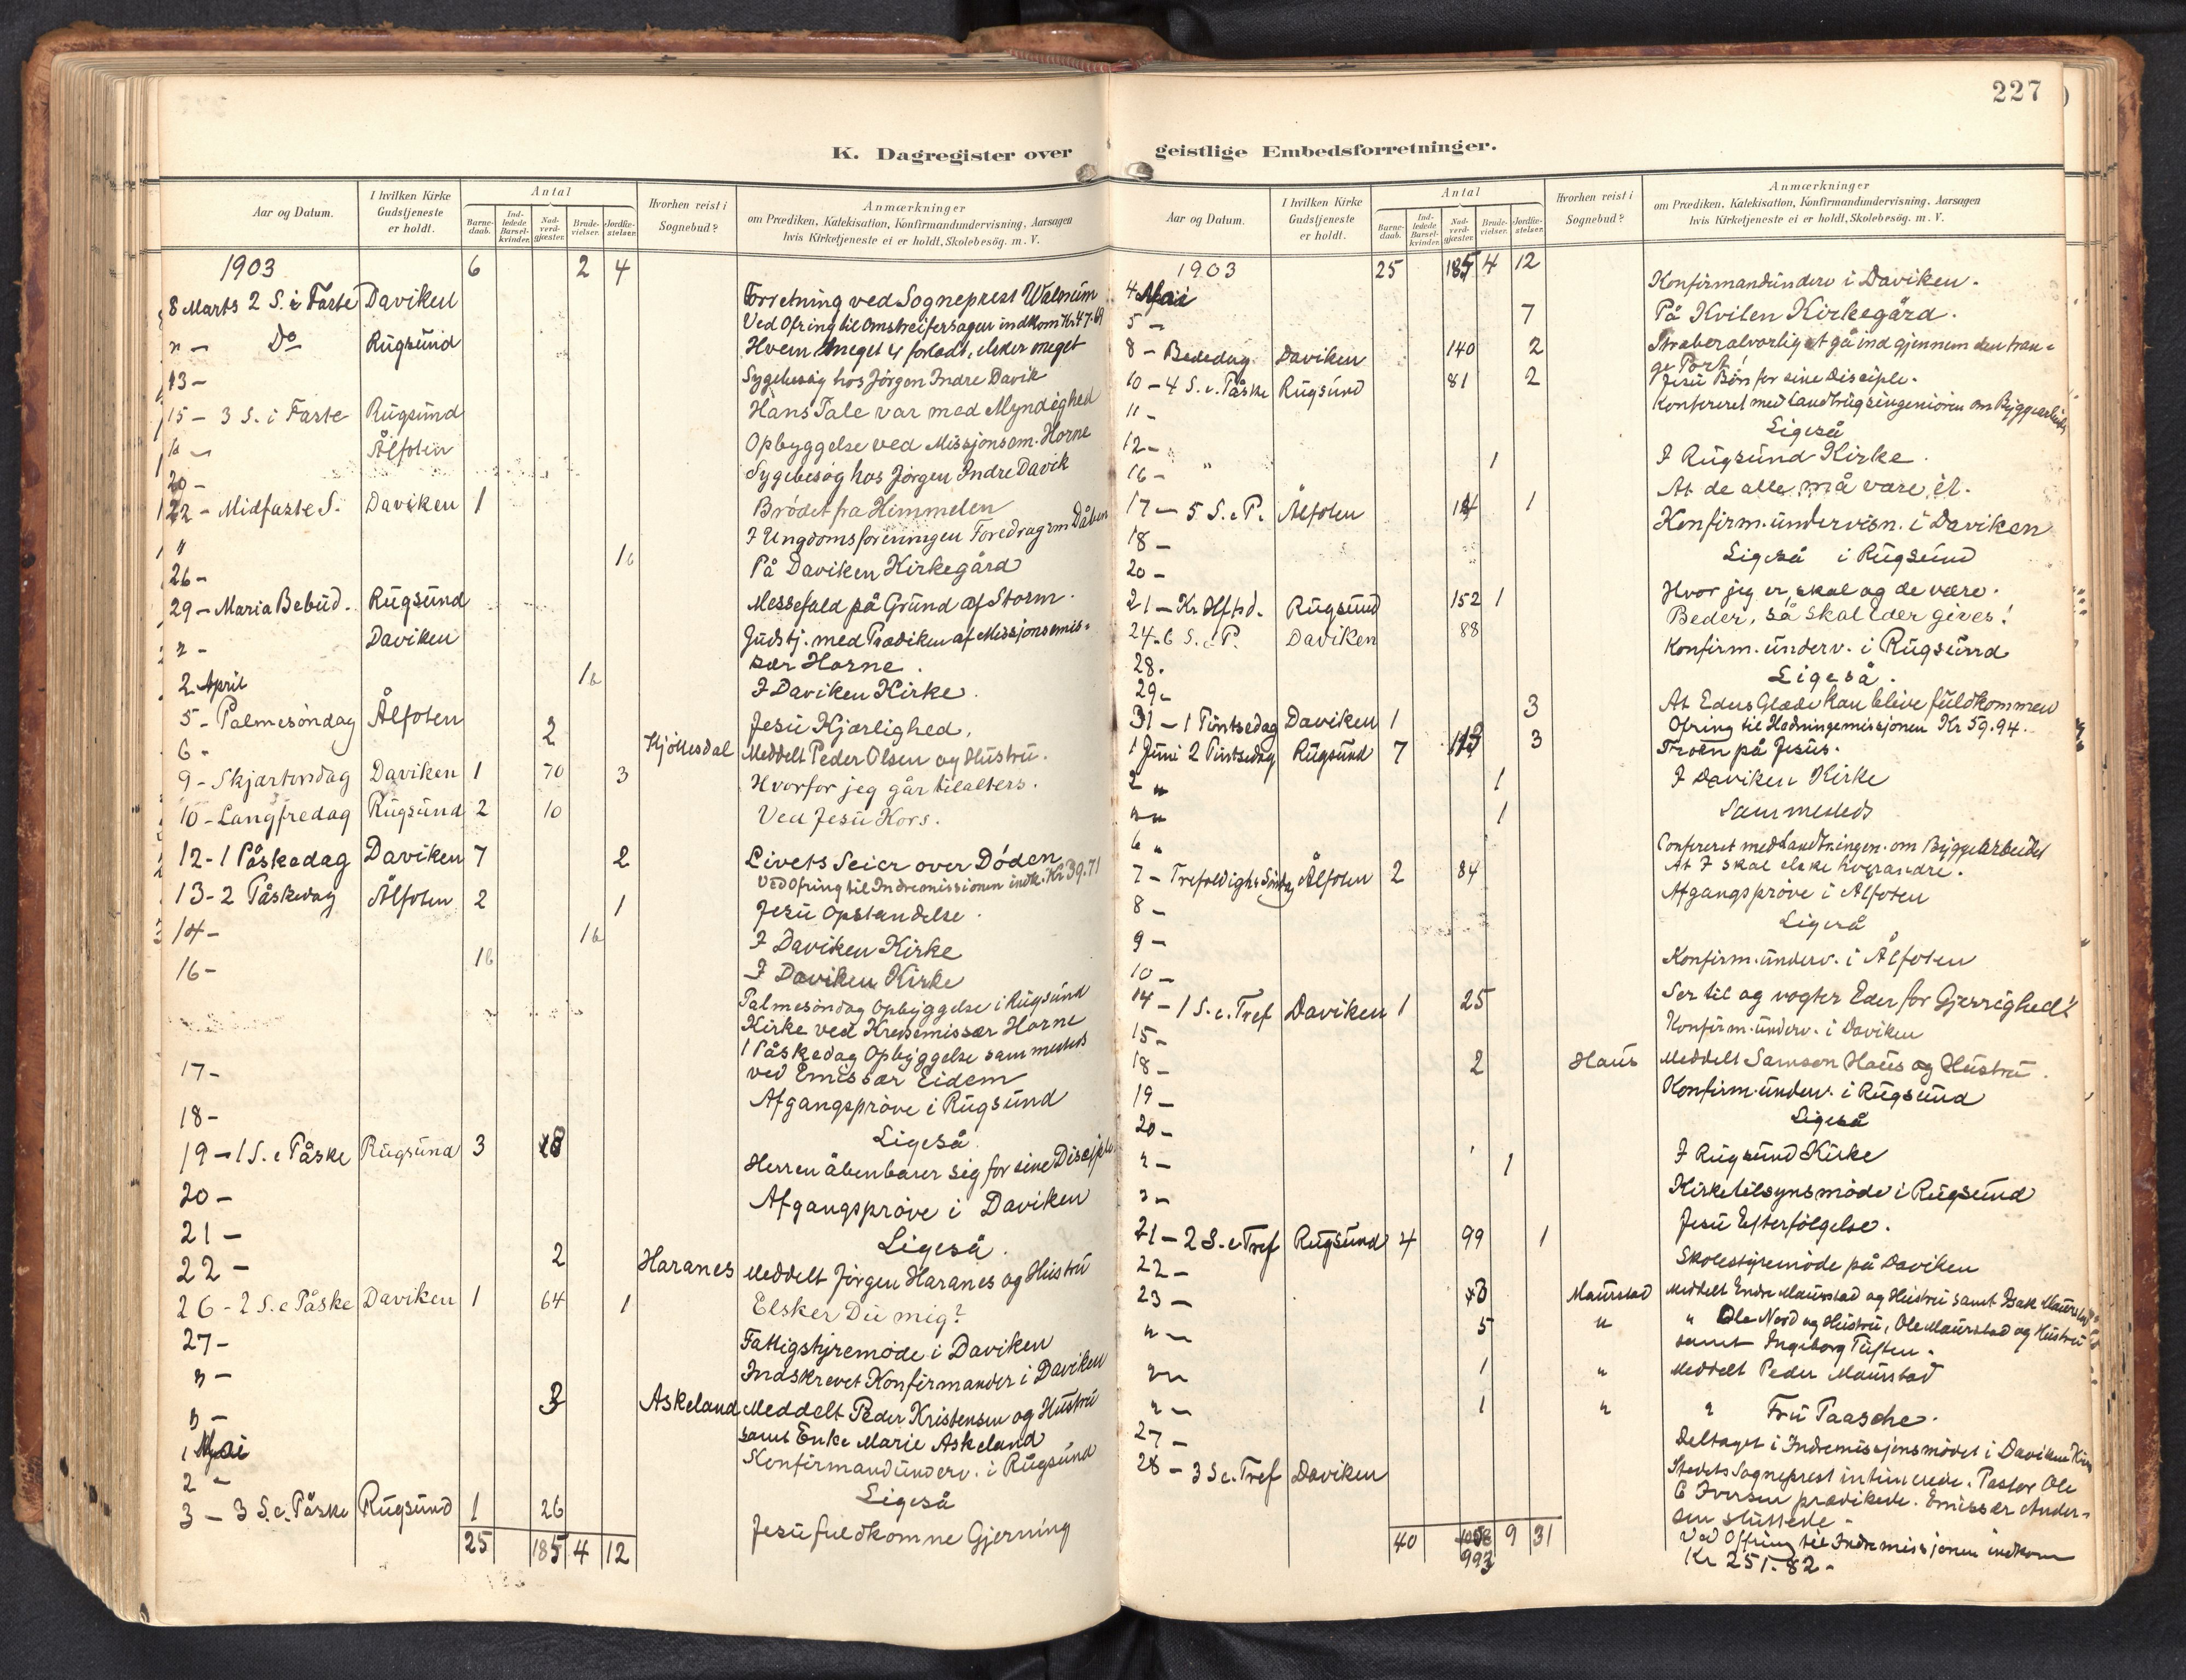 227
K. Dagregister over geistlige Embedsforretninger.
Aar og Datum. I hvilken Kirke Gudstjeneste er holdt. Antal Barne-daab. Ind-ledede Barsel-kvinder. Nad-verd-gjæster. Brude-vielser. Jordfæ-stelser. Hvorhen reist i Sognebud? Anmærkninger om Prædiken, Katekisation, Konfirmandundervisning, Aarsagen hvis Kirketjeneste ei er holdt, Skolebesøg. m. V.
1903 6 2 4
8 Marts 2 S. i Faste Daviken Forretning ved Sogneprest Walnum
Ved Ofring til Omstreifersagen indkom Kr 47.
" — Do Rugsund Hvem meget er forladt, elsker meget
13 — Sygebesøg hos Jörgen Indre Davik
15 — 3 S. i Faste Rugsund Hans Tale var med Myndighed
" — Ålfoten Opbyggelse ved Missjonsem. Horne
20 — Sygebesøg hos Jörgen Indre Davik
22 — Midfaste S. Daviken 1 Brödet fra Himmelen
" I Ungdomsforeningen Foredrag om Dåben
26 — 1 På Daviken Kirkegård
29 — Maria Bebud. Rugsund Messefald på Grund af Storm.
" — Daviken Gudstj. med Prædiken af Missjonsemis-
sær Horne.
2 April 1 I Daviken Kirke.
5 — Palmesöndag Ålfoten Jesu Kjærlighed.
6 — 2 Kjöllesdal Meddelt Peder Olsen og Hustru.
9 — Skjærtorsdag Daviken 1 70 3 Hvorfor jeg går tilalters.
10 — Langfredag Rugsund 2 10 Ved Jesu Kors.
12 — 1 Påskedag Daviken 7 2 Livets Seier over Döden
Ved Ofring til Indremissionen indk. Kr 39.71
13 — 2 Påskedag Ålfoten 2 1 Jesu Opstandelse.
14 — 1 I Daviken Kirke
16 — 1 I Daviken Kirke
Palmesöndag Opbyggelse i Rugsund
Kirke ved Kredsemissær Horne
1 Påskedag Opbyggelse sammesteds
ved Emissær Eidem
17 — Afgangspröve i Rugsund
18 — Ligeså
19 — 1 S. e Påske Rugsund 3 Herren åbenbarer sig for sine Disciple
20 — Afgangspröve i Daviken
21 — Ligeså.
22 — 2 Haranes Meddelt Jörgen Haranes og Hustru
26 — 2 S. e Påske Daviken 1 64 1 Elsker Du mig?
27 — Fattigstyremöde i Daviken
" — Indskrevet Konfirmander i Daviken
" — 3 Askeland Meddelt Peder Kristensen og Hustru
samt Enke Marie Askeland
1 Mai Konfirmandunderv. i Rugsund
2 — Ligeså
3 — 3 S. e. Påske Rugsund 1 26 Jesu fuldkomne Gjerning
25 185 4 12
Aar og Datum. I hvilken Kirke Gudstjeneste er holdt. Antal Barne-daab. Ind-ledede Barsel-kvinder. Nad-verd-gjæster. Brude-vielser. Jordfæ-stelser. Hvorhen reist i Sognebud? Anmærkninger om Prædiken, Katekisation, Konfirmandundervisning, Aarsagen hvis Kirketjeneste ei er holdt, Skolebesøg. m. V.
1903 25 185 4 12
4 Mai Konfirmandunderv i Daviken.
5 — 7 På Kvilen Kirkegård.
8 — Bededag Daviken 140 2 Stræber alvorligst gå ind gjennem den tran-
ge Port!
10 — 4 S. e. Påske Rugsund 81 2 Jesu Bön for sine Disciple.
11 — Konfereret med Landbrugsingeniören om Byggearbeidet
12 — Ligeså
16 — 1 I Rugsund Kirke.
17 — 5 S. e P. Ålfoten 1 At de alle må være ét.
18 — Konfirm. undervisn. i Daviken
20 — Ligeså i Rugsund
21 — Kr. Hftd. Rugsund 152 1 Hvor jeg er, skal og de være.
24 — 6 S. e P. Daviken 88 Beder, så skal Eder gives!
28. Konfirm. underv. i Rugsund
29 — Ligeså.
31 — 1 Pintsedag Daviken 1 3 At Eders Glæde kan blive fuldkommen
Ofring til Hedningemissjonen Kr 59.94.
1 Juni 2 Pintsedag Rugsund 7 3 Troen på Jesus.
2 " 1 I Daviken Kirke
" " 1 Sammesteds
6 " Confereret med Landbr.ingen. om Byggearbeidet
7 — Trefoldigh. Söndag Ålfoten 2 84 At I skal elske hverandre.
8 — Afgangspröve i Ålfoten
9 — Ligeså
10 — Konfirm. underv. i Ålfoten
14 — 1 S. e. Tref Daviken 1 25 Ser til og vogter Eder for Gjerrighed!
15 — Konfirm. underv. i Daviken
18 — 2 Haus Meddelt Samson Haus og Hustru.
19 — Konfirm. underv. i Rugsund
20 — Ligeså
" — 1 I Rugsund Kirke
" — Kirketilsynsmöde i Rugsund
21 — 2 S. e Tref Rugsund 4 99 1 Jesu Efterfölgelse.
22 — Skolestyremöde på Daviken
23 — 3 Maurstad Meddelt Endre Maurstad og Hustru samt Isak Maurstad
" — 5 " " Ole Nord og Hustru, Ole Maurstad og Hustru
samt Ingeborg Tuften.
" — 1 " Meddelt Peder Maurstad
" — 1 " " Fru Paasche.
27 — Deltaget i Indremissjonsmödet i Daviken Kirke
28 — 3 S e. Tref Daviken Stedets Sogneprest intimerede. Pastor Ole
C Iversen prædikede. Emissær Ander-
sen sluttede.
Ved Offring til Indremissjonen indkom
Kr 251.82 —
40 993 9 31